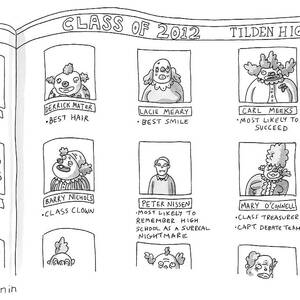 CLASS OF 2012
TILDEN HIG
DERRICK MATER
• BEST HAIR
LACIE MEARY
• BEST SMILE
CARL MEEKS
• MOST LIKELY TO
SUCCEED
BARRY NICHOLS
• CLASS CLOWN
PETER NISSEN
• MOST LIKELY TO
REMEMBER HIGH
SCHOOL AS A SURREAL
NIGHTMARE
MARY O'CONNELL
• CLASS TREASURER
• CAPT. DEBATE TEAM
nin